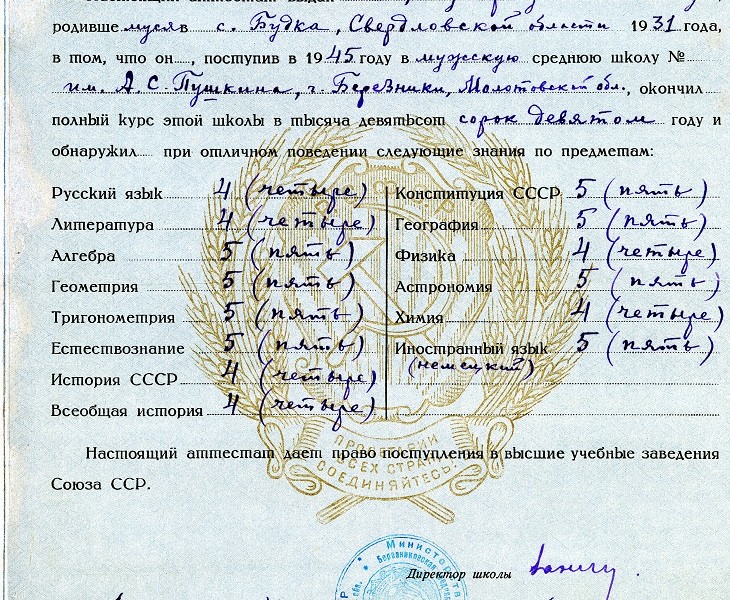 родившемуся в с. Будка, Свердловской области 1931 года,
в том, что он, поступив в 1945 году в мужскую среднюю школу №
им. А. С. Пушкина, г. Березники, Молотовской обл., окончил
полный курс этой школы в тысяча девятьсот сорок девятом году и
обнаружил при отличном поведении следующие знания по предметам:
Русский язык 4 (четыре)
Литература 4 (четыре)
Алгебра 5 (пять)
Геометрия 5 (пять)
Тригонометрия 5 (пять)
Естествознание 5 (пять)
История СССР 4 (четыре)
Всеобщая история 4 (четыре)
Конституция СССР 5 (пять)
География 5 (пять)
Физика 4 (четыре)
Астрономия 5 (пять)
Химия 4 (четыре)
Иностранный язык 5 (пять)
(немецкий)
ПРОЛЕТАРИИ
ВСЕХ СТРАН
СОЕДИНЯЙТЕСЬ!
Настоящий аттестат дает право поступления в высшие учебные заведения
Союза ССР.
Министерство
Березниковская
Директор школы